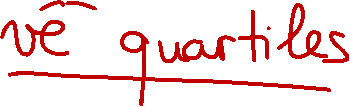 vê quartiles